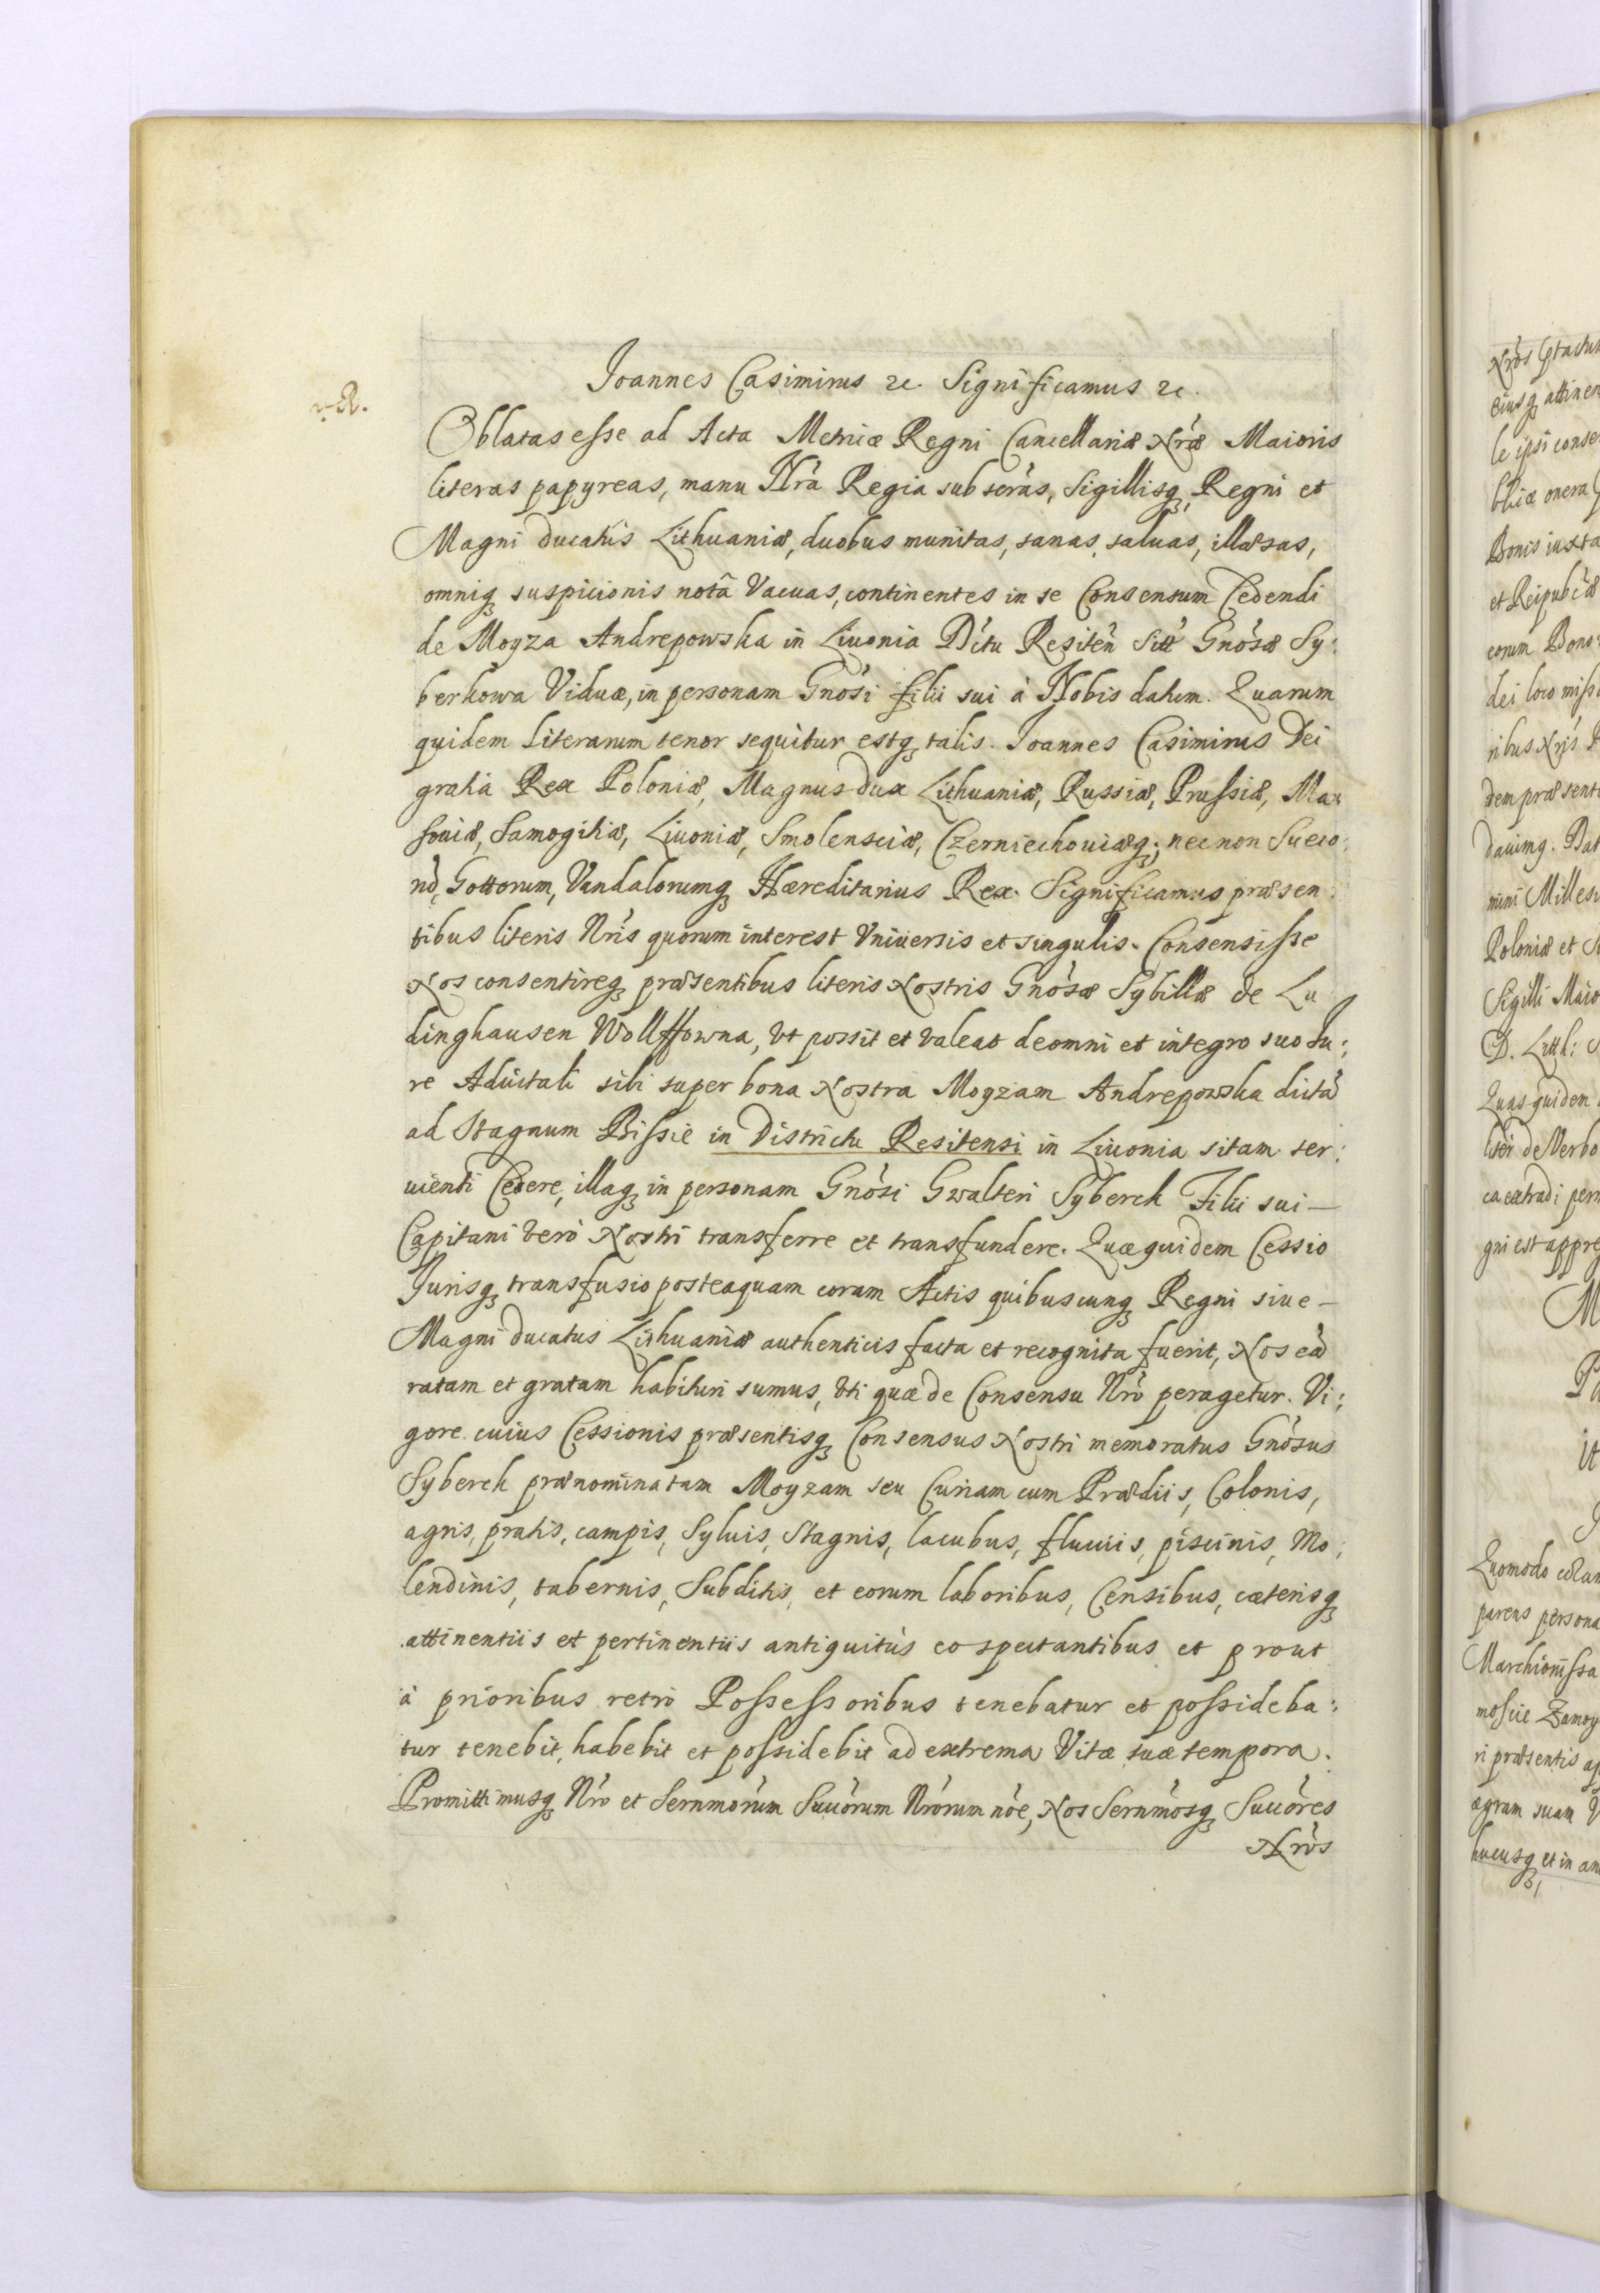 Joannes Casimirus &c. Significamus &c.
Oblatas esse ad Acta Metricæ Regni Cancellariæ Nræ Maioris
literas papyreas, manu Nrà Regia subscràs, Sigillisq, Regni et
Magni Ducatus Lithuaniæ, duobus munitas, sanas, saluas, illæsas,
omniq, suspicionis notã Vacuas, continentes in se Consensum Cedendi
de Moyza Andrepowska in Liuonia Dictu Resiteñ Sitt Gnosæ Sy:
berkowa Viduæ, in personam Gnosi filii sui à Nobis datum. Quarum
quidem Literarum tenor sequitur estq, talis. Joannes Casimirus Dei
gratia Rex Poloniæ, Magnus Dux Lithuaniæ, Russiæ, Prussiæ, Ma:
souiæ, Samogitiæ, Liuoniæ, Smolensciæ, Czerniechouiæq; necnon Sueco:
rũ, Gottorum, Vandalorumq, Hæreditarius Rex. Significamus præsen:
tibus literis Nris quorum interest Vniuersis et singulis. Consensisse
Nos consentireq, præsentibus literis Nostris Gnosæ Sybillæ de Lu
dinghausen Wollffowna, vt possit et valeat de omni et integro suo Ju:
re Aduitali sibi super bona Nostra Moyzam Andrepowska dictã
ad Stagnum Bissie in Districtu Resitensi in Liuonia sitam ser:
uienti Cedere, illaq, in personam Gnosi Gwalteri Syberch Filii sui –
Capitani vero Nostri transferre et transfundere. Quæquidem Cessio
Jurisq, transfusio posteaquam coram Actis quibuscunq, Regni siue –
Magni Ducatus Lithuaniæ authenticis facta et recognita fuerit, Nos eã
ratam et gratam habituri sumus, vti quæ de Consensu Nro peragetur. Vi:
gore cuius Cessionis præsentisq, Consensus Nostri memoratus Gnosus
Syberch prænominatam Moyzam seu Curiam cum Prædiis, Colonis,
agris, pratis, campis, Syluis, Stagnis, lacubus, fluuiis, piscinis, Mo:
lendinis, tabernis, Subditis, et eorum laboribus, Censibus, cæterisq,
attinentiis et pertinentiis antiquitùs eo spectantibus et prout
à prioribus retro Possessoribus tenebatur et possideba:
tur tenebit, habebit et possidebit ad extrema Vitæ suæ tempora.
Promittimusq, Nro et Sernmorum Succorum Nrorum noe, Nos Sernmosq, Succores
Nros